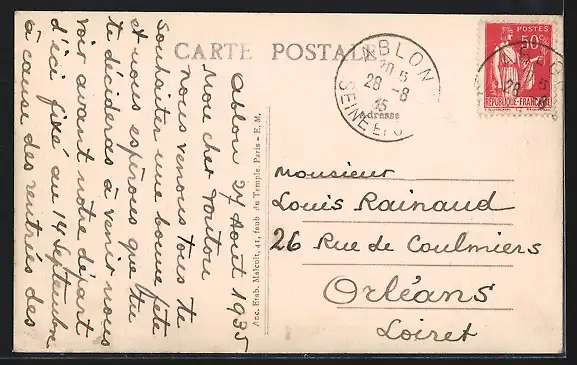 CARTE POSTALE
Ablon 27 Août 1935
Mon cher Tonton
Nous venons tous te
souhaiter une bonne fête
et nous espérons que tu
te décideras à venir nous
voir avant notre départ
d'ici fixé au 14 Septembre
à cause des rentrées des
Anc. Etab. Malcuit, 41, faub. du Temple, Paris - E. M.
ABLON
20 5
28 - 8
35
SEINE ET O
Adresse
POSTES
50c
REPUBLIQUE FRANCAISE
Monsieur
Louis Rainaud
26 Rue de Coulmiers
Orléans
Loiret